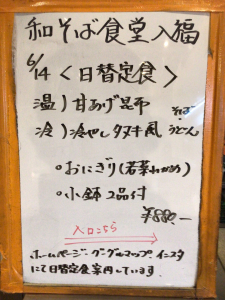 和そば食堂入福
6/14 <日替定食>
温) 甘あげ昆布
そば
冷) 冷やしタヌキ風 うどん
○おにぎり(若菜わかめ)
○小鉢2品付
¥880.-
入口こちら
ホームページ・グーグルマップ・インスタ
にて日替定食案内しています.